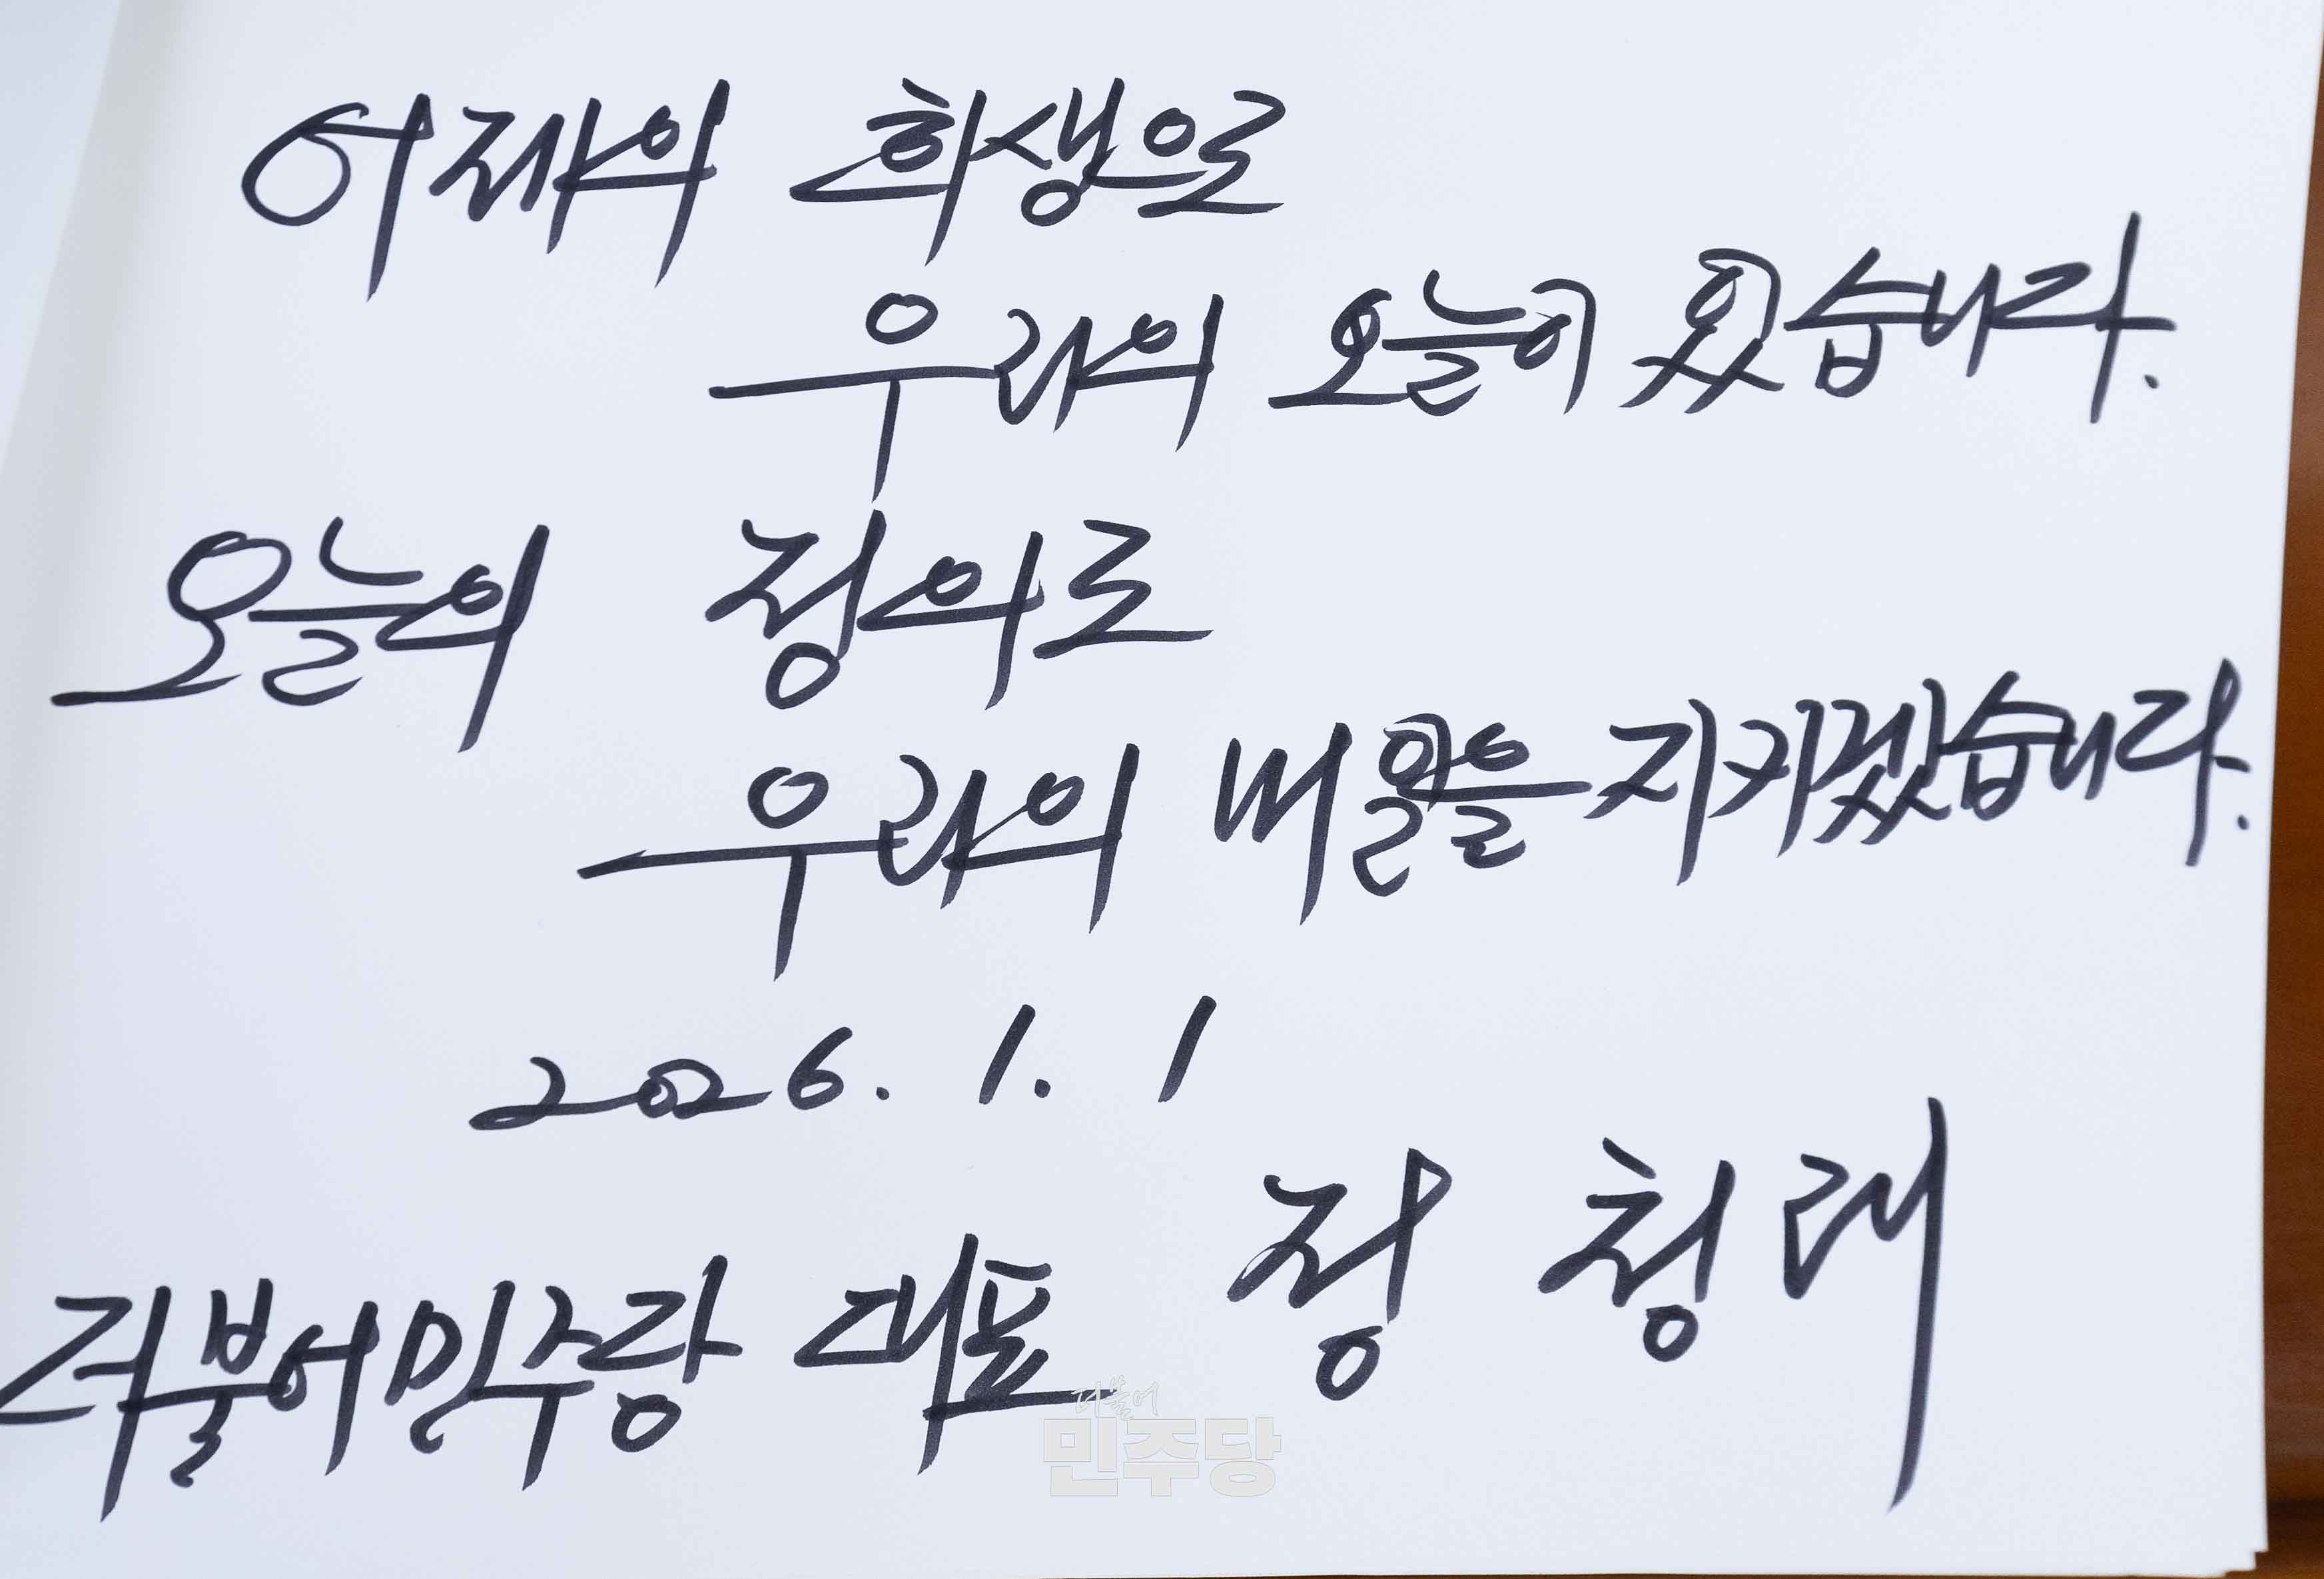 어제의 희생으로
우리의 오늘이 있습니다.
오늘의 정의로
우리의 내일을 지키겠습니다.
2026. 1. 1
더불어민주당 대표 정청래
더불어
민주당